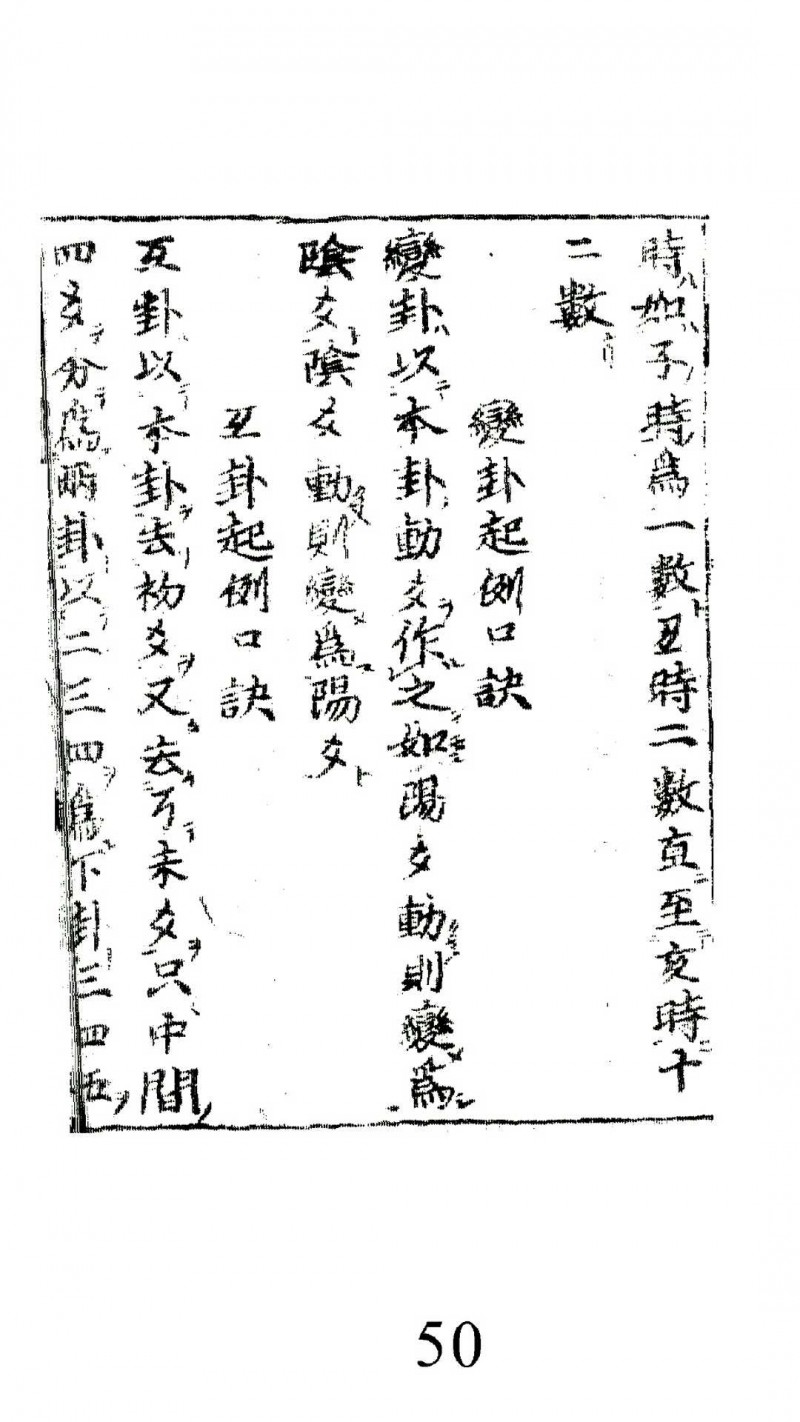 時如子時爲一數丑時二數直至亥時十
二數
變卦起例口訣
變卦以本卦動爻作之如陽爻動則變爲
陰爻陰爻動則變爲陽爻
互卦起例口訣
互卦以本卦去初爻又去了末爻只中間
四爻分爲兩卦以二三四爲下卦三四五
50